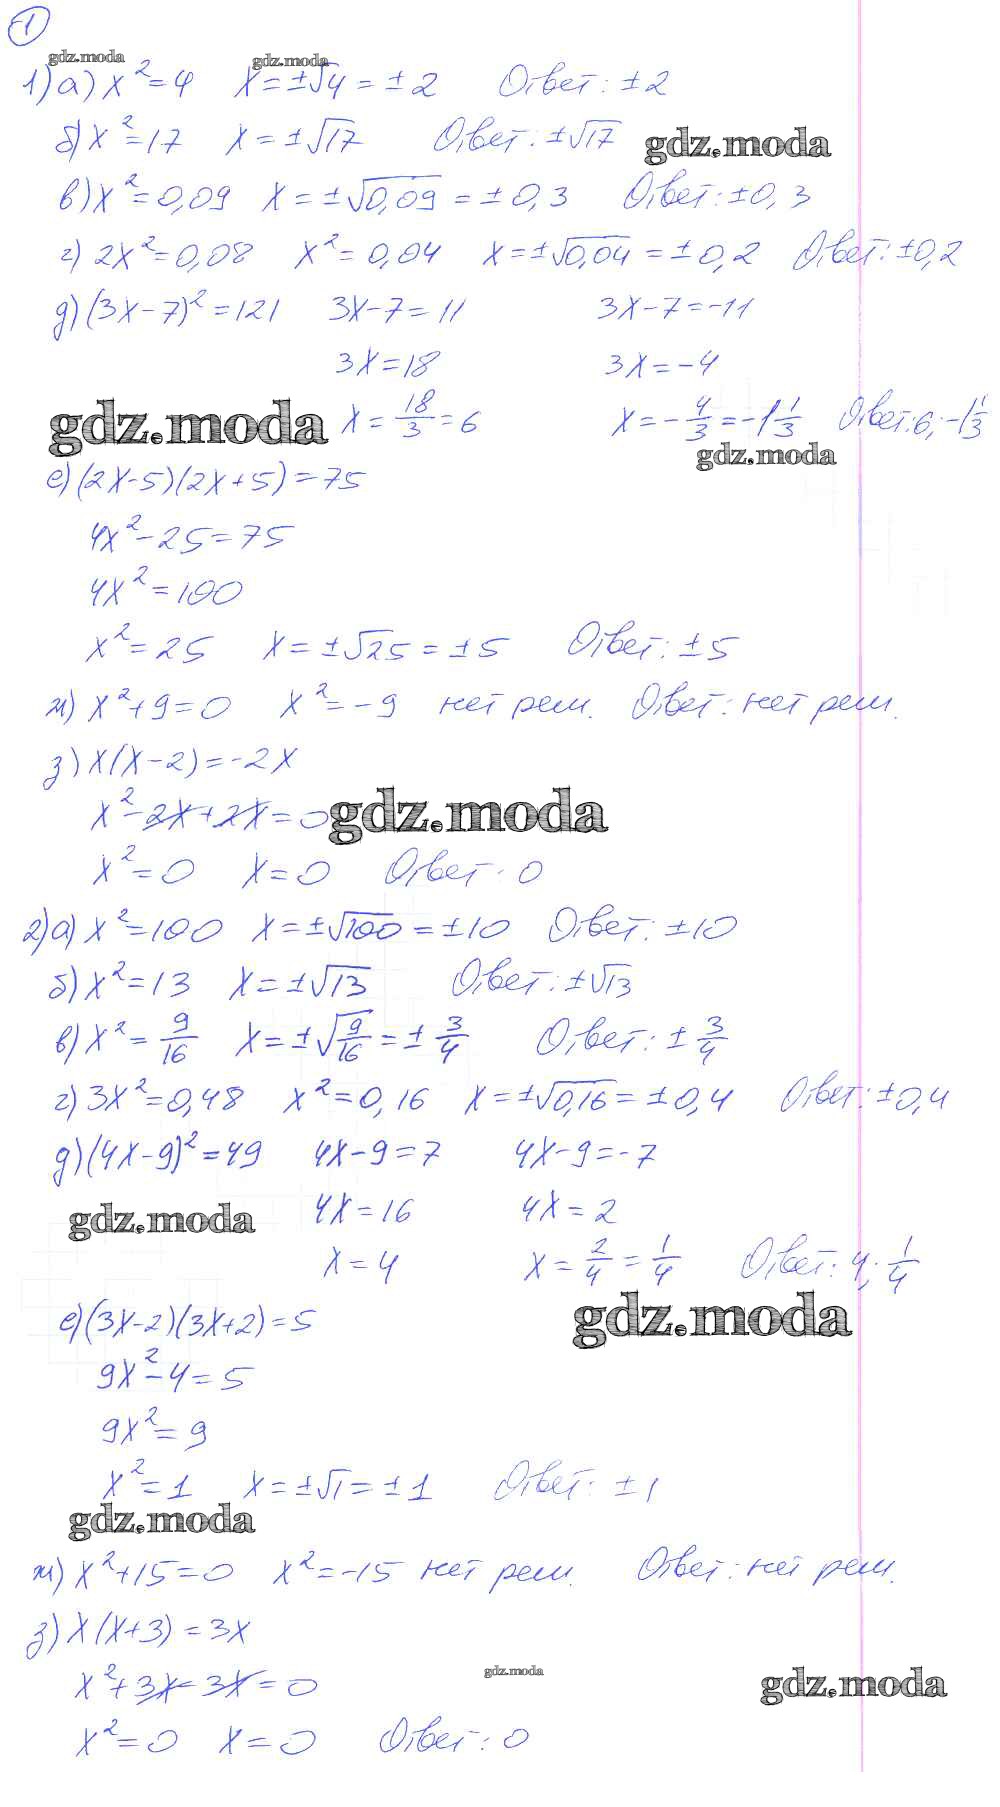 1
gdz.moda gdz.moda
1) а) x² = 4 x = ±√4 = ±2 Ответ: ±2
б) x² = 17 x = ±√17 Ответ: ±√17
gdz.moda
в) x² = 0,09 x = ±√0,09 = ±0,3 Ответ: ±0,3
г) 2x² = 0,08 x² = 0,04 x = ±√0,04 = ±0,2 Ответ: ±0,2
д) (3x-7)² = 121 3x-7 = 11 3x-7 = -11
3x = 18 3x = -4
gdz.moda x = 18/3 = 6 x = -4/3 = -1 1/3 Ответ: 6; -1 1/3
gdz.moda
е) (2x-5)(2x+5) = 75
4x² - 25 = 75
4x² = 100
x² = 25 x = ±√25 = ±5 Ответ: ±5
ж) x² + 9 = 0 x² = -9 нет реш. Ответ: нет реш.
з) x(x-2) = -2x
x² - 2x + 2x = 0 gdz.moda
x² = 0 x = 0 Ответ: 0
2) а) x² = 100 x = ±√100 = ±10 Ответ: ±10
б) x² = 13 x = ±√13 Ответ: ±√13
в) x² = 9/16 x = ±√9/16 = ±3/4 Ответ: ±3/4
г) 3x² = 0,48 x² = 0,16 x = ±√0,16 = ±0,4 Ответ: ±0,4
д) (4x-9)² = 49 4x-9 = 7 4x-9 = -7
gdz.moda 4x = 16 4x = 2
x = 4 x = 2/4 = 1/4 Ответ: 4; 1/4
е) (3x-2)(3x+2) = 5 gdz.moda
9x² - 4 = 5
9x² = 9
x² = 1 x = ±√1 = ±1 Ответ: ±1
gdz.moda
ж) x² + 15 = 0 x² = -15 нет реш. Ответ: нет реш.
з) x(x+3) = 3x
x² + 3x - 3x = 0 gdz.moda gdz.moda
x² = 0 x = 0 Ответ: 0